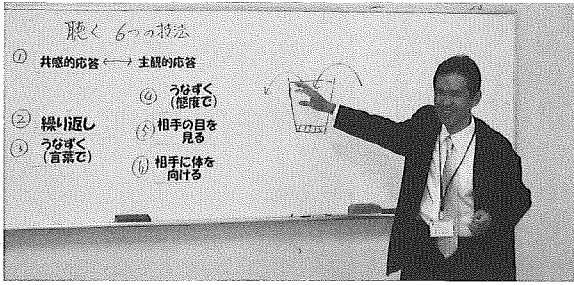 聴く 6つの技法
① 共感的応答 ←→ 主観的応答
② 繰り返し
③ うなずく
(言葉で)
④ うなずく
(態度で)
⑤ 相手の目を
見る
⑥ 相手に体を
向ける